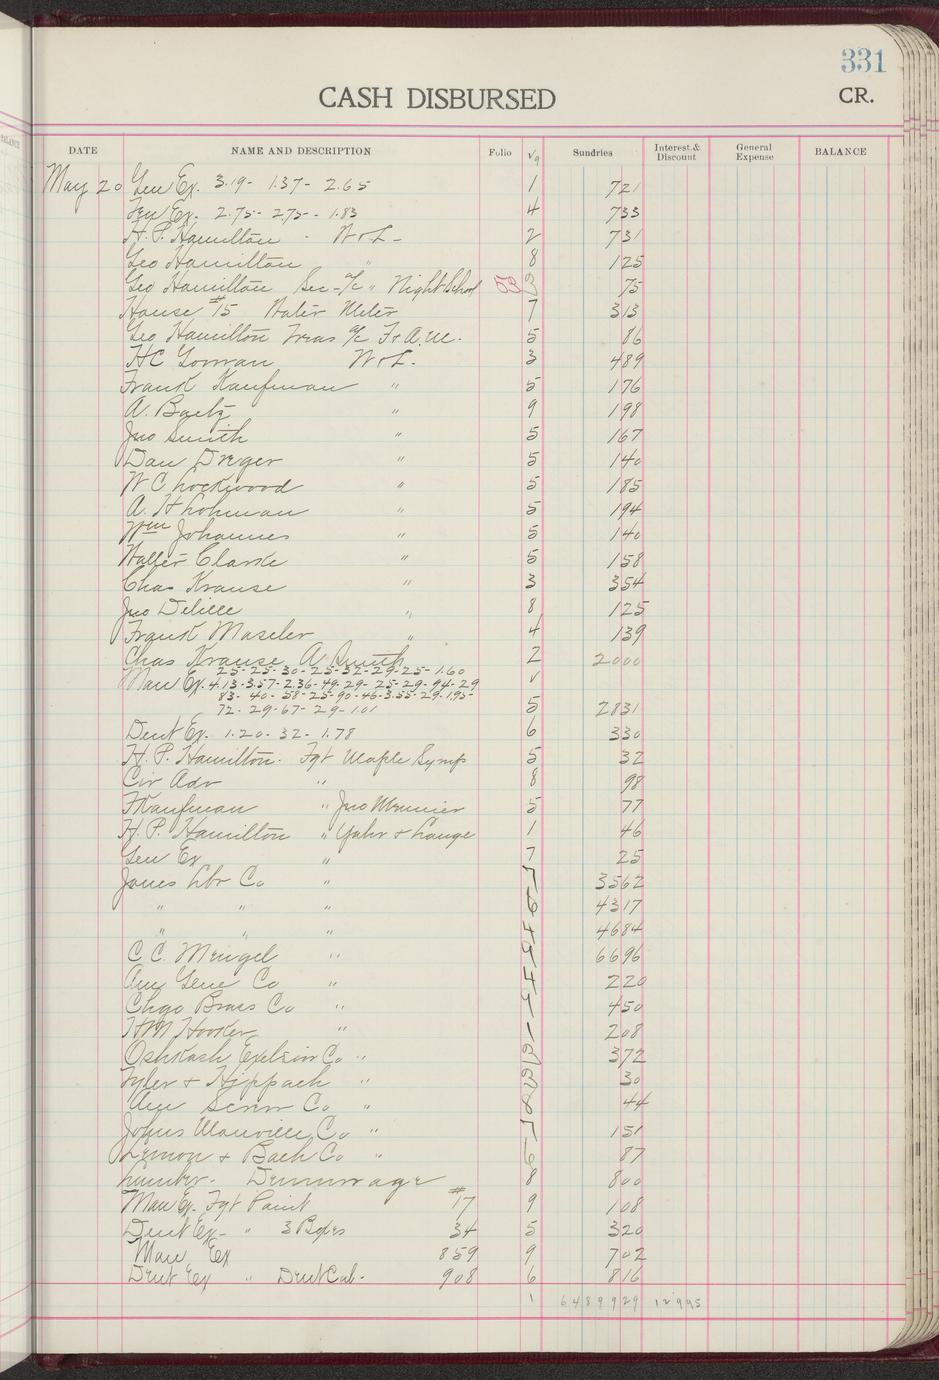 331
CASH DISBURSED CR.
BALANCE
DATE NAME AND DESCRIPTION Folio Sundries Interest & Discount General Expense BALANCE
May 20 Gen Ex. 3.19- 1.37- 2.65 1 721
Gen Ex. 2.75- 2.75-- 1.83 4 733
H.P. Hamilton - W & L - 2 731
Geo Hamilton " 8 125
Geo Hamilton Sec-a/c " Night School 53 3 75
House #15 Water Meter 7 313
Geo Hamilton Treas a/c F & A.M. 5 86
HC Gorman W & L. 3 489
Frank Kaufman " 5 176
A. Baetz " 9 198
Jno Smith " 5 167
Dan Dreger " 5 140
W C Lockwood " 5 185
A. H Lohman " 5 194
Wm Johannes " 5 140
Walter Clarke " 5 158
Chas Krause " 3 354
Jno Delille " 8 125
Frank Maseler " 4 139
Chas Krause A Smith 2 2000
25-25-30-25-32-29-25-1.60
Man Ex. 4.13-3.57-2.36-49-29-25-29-94-29 √
83-40-58-25-90-46-3.55-29-1.95-
72-29-67-29-1.01 5 2831
Dent Ex. 1.20-32-1.78 6 330
H.P. Hamilton. Fgt Maple Syrup 5 32
Cir Adv " 8 98
F Kaufman " Jno Meunier 5 77
H.P. Hamilton " Yahr & Lange 1 46
Gen Ex " 7 25
Jones Lbr Co " 3562
" " " 4317
" " " 4684
C.C. Mengel " 6696
Am Gene Co " 220
Chgo Brass Co " 450
HM Hooker " 208
Oshkosh Exelsior Co " 372
Tyler & Hippach " 30
Am Screw Co " 44
Johns Manville Co " 151
Lemon & Bach Co " 87
Lumber - Demurrage 8 800
Man Ex. Fgt Paint #17 9 108
Dent Ex- " 3 Boxes 34 5 320
Man Ex 859 9 702
Dent Ex " Dent Cab. 908 6 816
1 6489929 12995